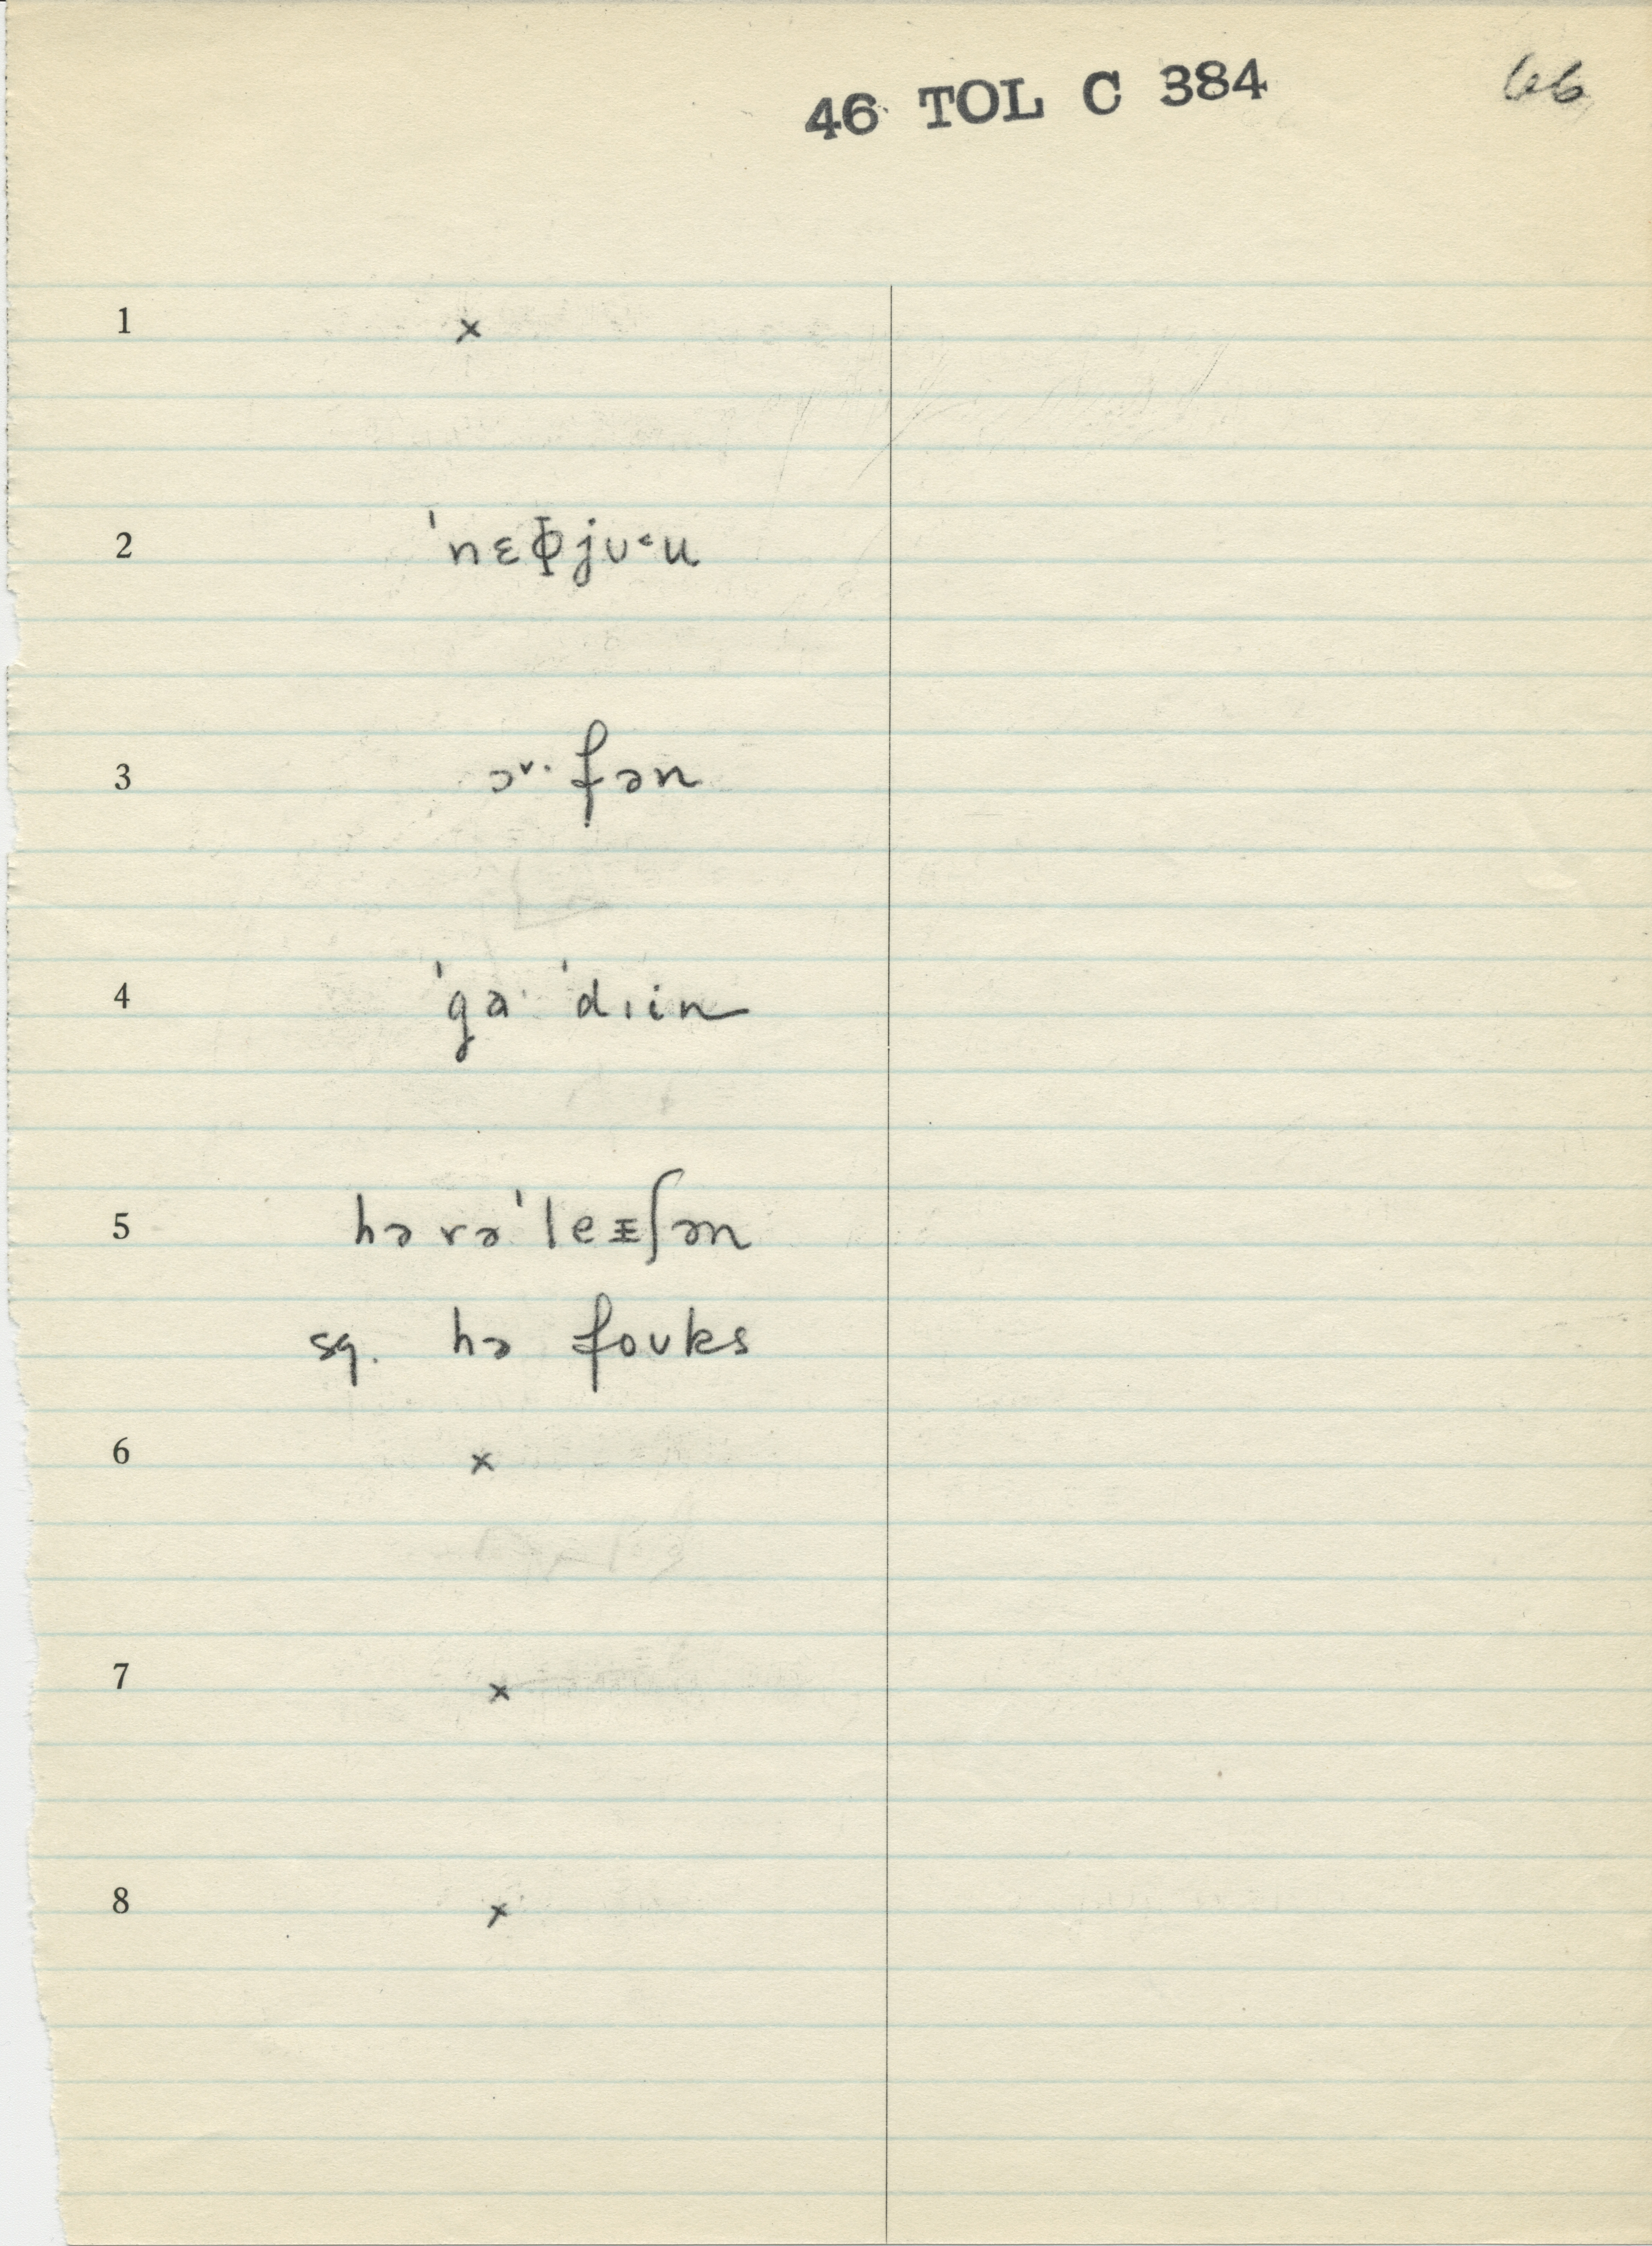 46 TOL C 384 66
1 ×
2 ˈnɛɸjʊ˂u
3 ɔ˅·fən
4 ˈga· ˈdɪin
5 hə rəˈleᵻʃən
sq. hə foʊks
6 ×
7 ×
8 ×